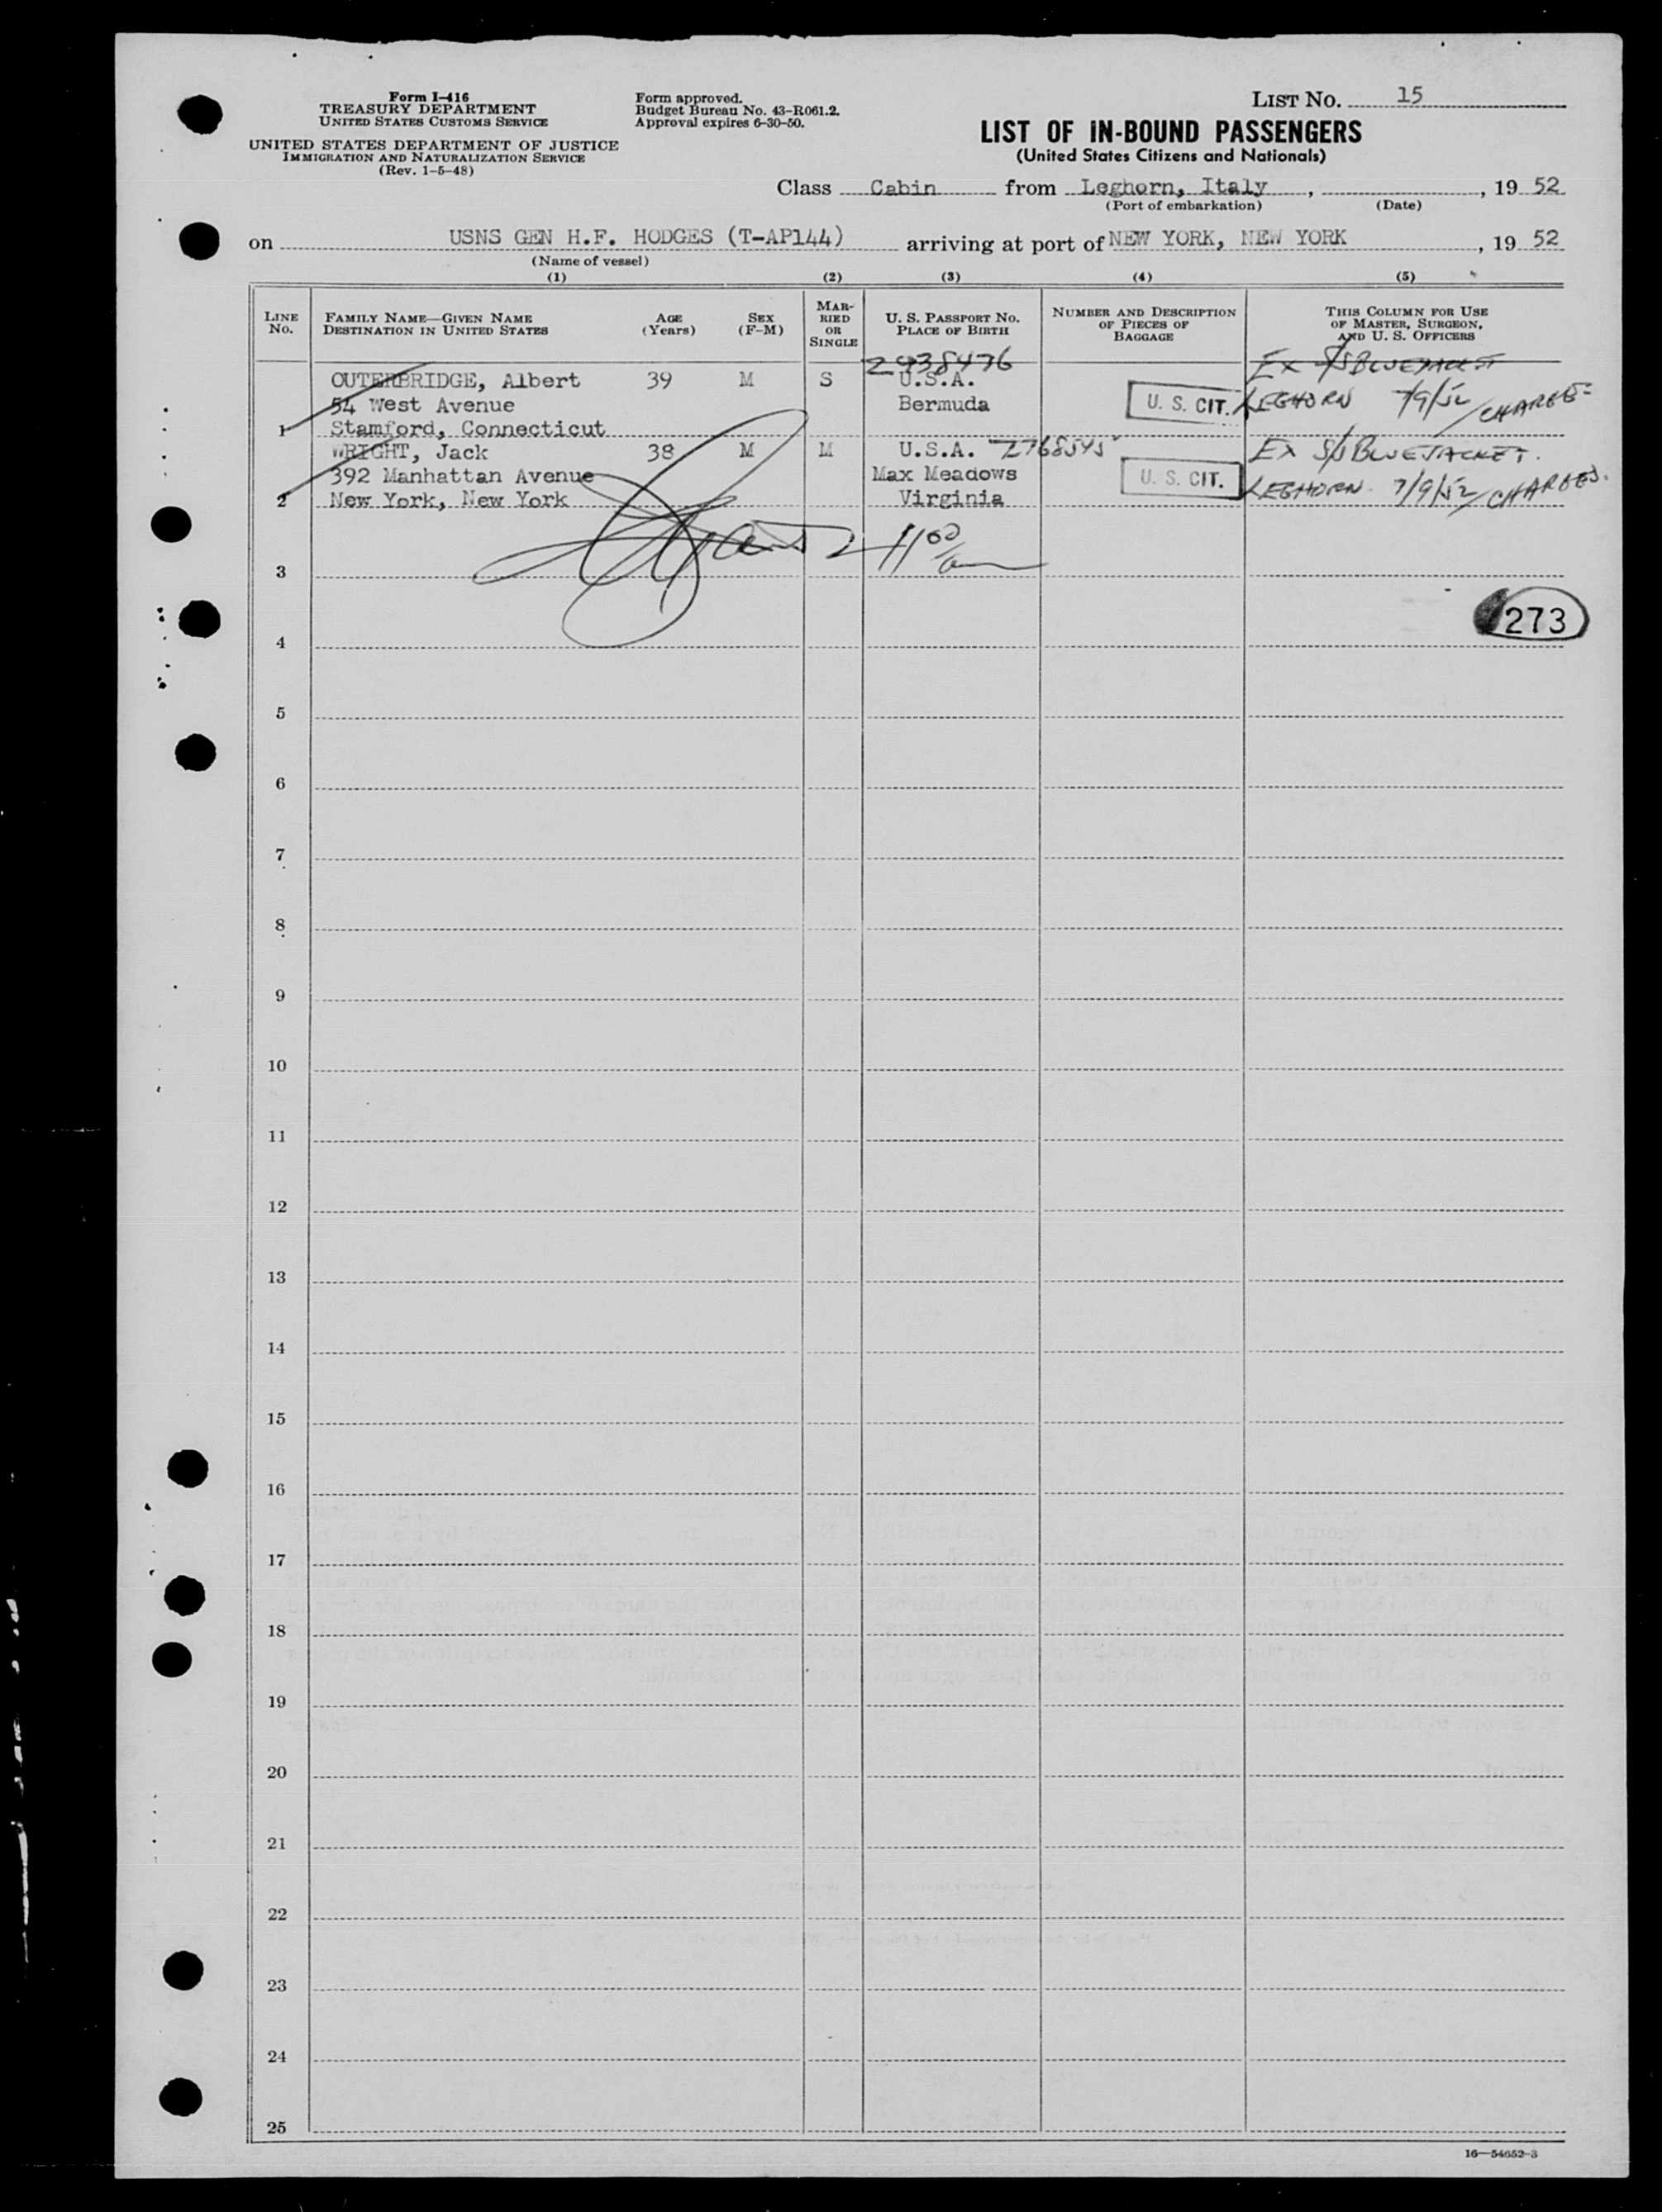 Form I-416
TREASURY DEPARTMENT
UNITED STATES CUSTOMS SERVICE
UNITED STATES DEPARTMENT OF JUSTICE
IMMIGRATION AND NATURALIZATION SERVICE
(Rev. 1-5-48)
Form approved.
Budget Bureau No. 43-R061.2.
Approval expires 6-30-50.
LIST No. 15
LIST OF IN-BOUND PASSENGERS
(United States Citizens and Nationals)
Class Cabin from Leghorn, Italy , , 19 52
(Port of embarkation) (Date)
on USNS GEN H.F. HODGES (T-AP144) arriving at port of NEW YORK, NEW YORK , 19 52
(Name of vessel)
(1) (2) (3) (4) (5)
LINE No.
FAMILY NAME—GIVEN NAME
DESTINATION IN UNITED STATES
AGE (Years)
SEX (F-M)
MARRIED OR SINGLE
U. S. PASSPORT No.
PLACE OF BIRTH
NUMBER AND DESCRIPTION OF PIECES OF BAGGAGE
THIS COLUMN FOR USE OF MASTER, SURGEON, AND U. S. OFFICERS
2938476 EX S/S BLUEJACKET
OUTERBRIDGE, Albert 39 M S U.S.A.
54 West Avenue Bermuda U. S. CIT. LEGHORN 7/9/52 / CHARGES
1 Stamford, Connecticut
WRIGHT, Jack 38 M M U.S.A. 2768545 EX S/S BLUEJACKET.
392 Manhattan Avenue Max Meadows U. S. CIT. LEGHORN 7/9/52 / CHARGES.
2 New York, New York Virginia
11 00/am
3
273
4
5
6
7
8
9
10
11
12
13
14
15
16
17
18
19
20
21
22
23
24
25
16—54652-3